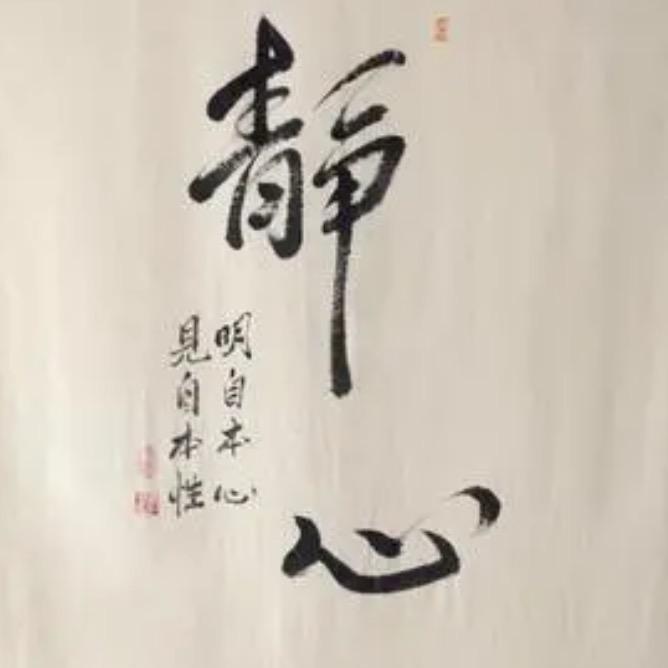 靜心
明自本心
見自本性